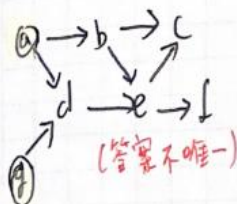 a → b → c
d → e → f
(答案不唯一)
g